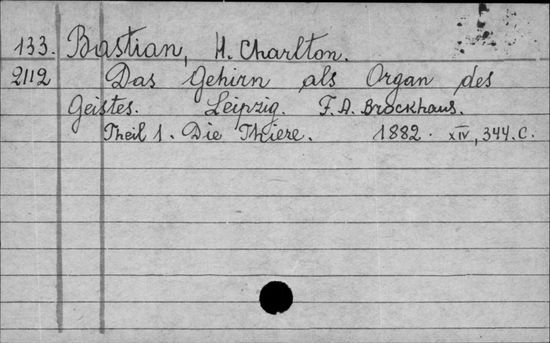 133. Bastian, H. Charlton.
2112 Das Gehirn als Organ des
Geistes. Leipzig. F. A. Brockhaus.
Theil 1. Die Thiere. 1882. XIV, 344. C.